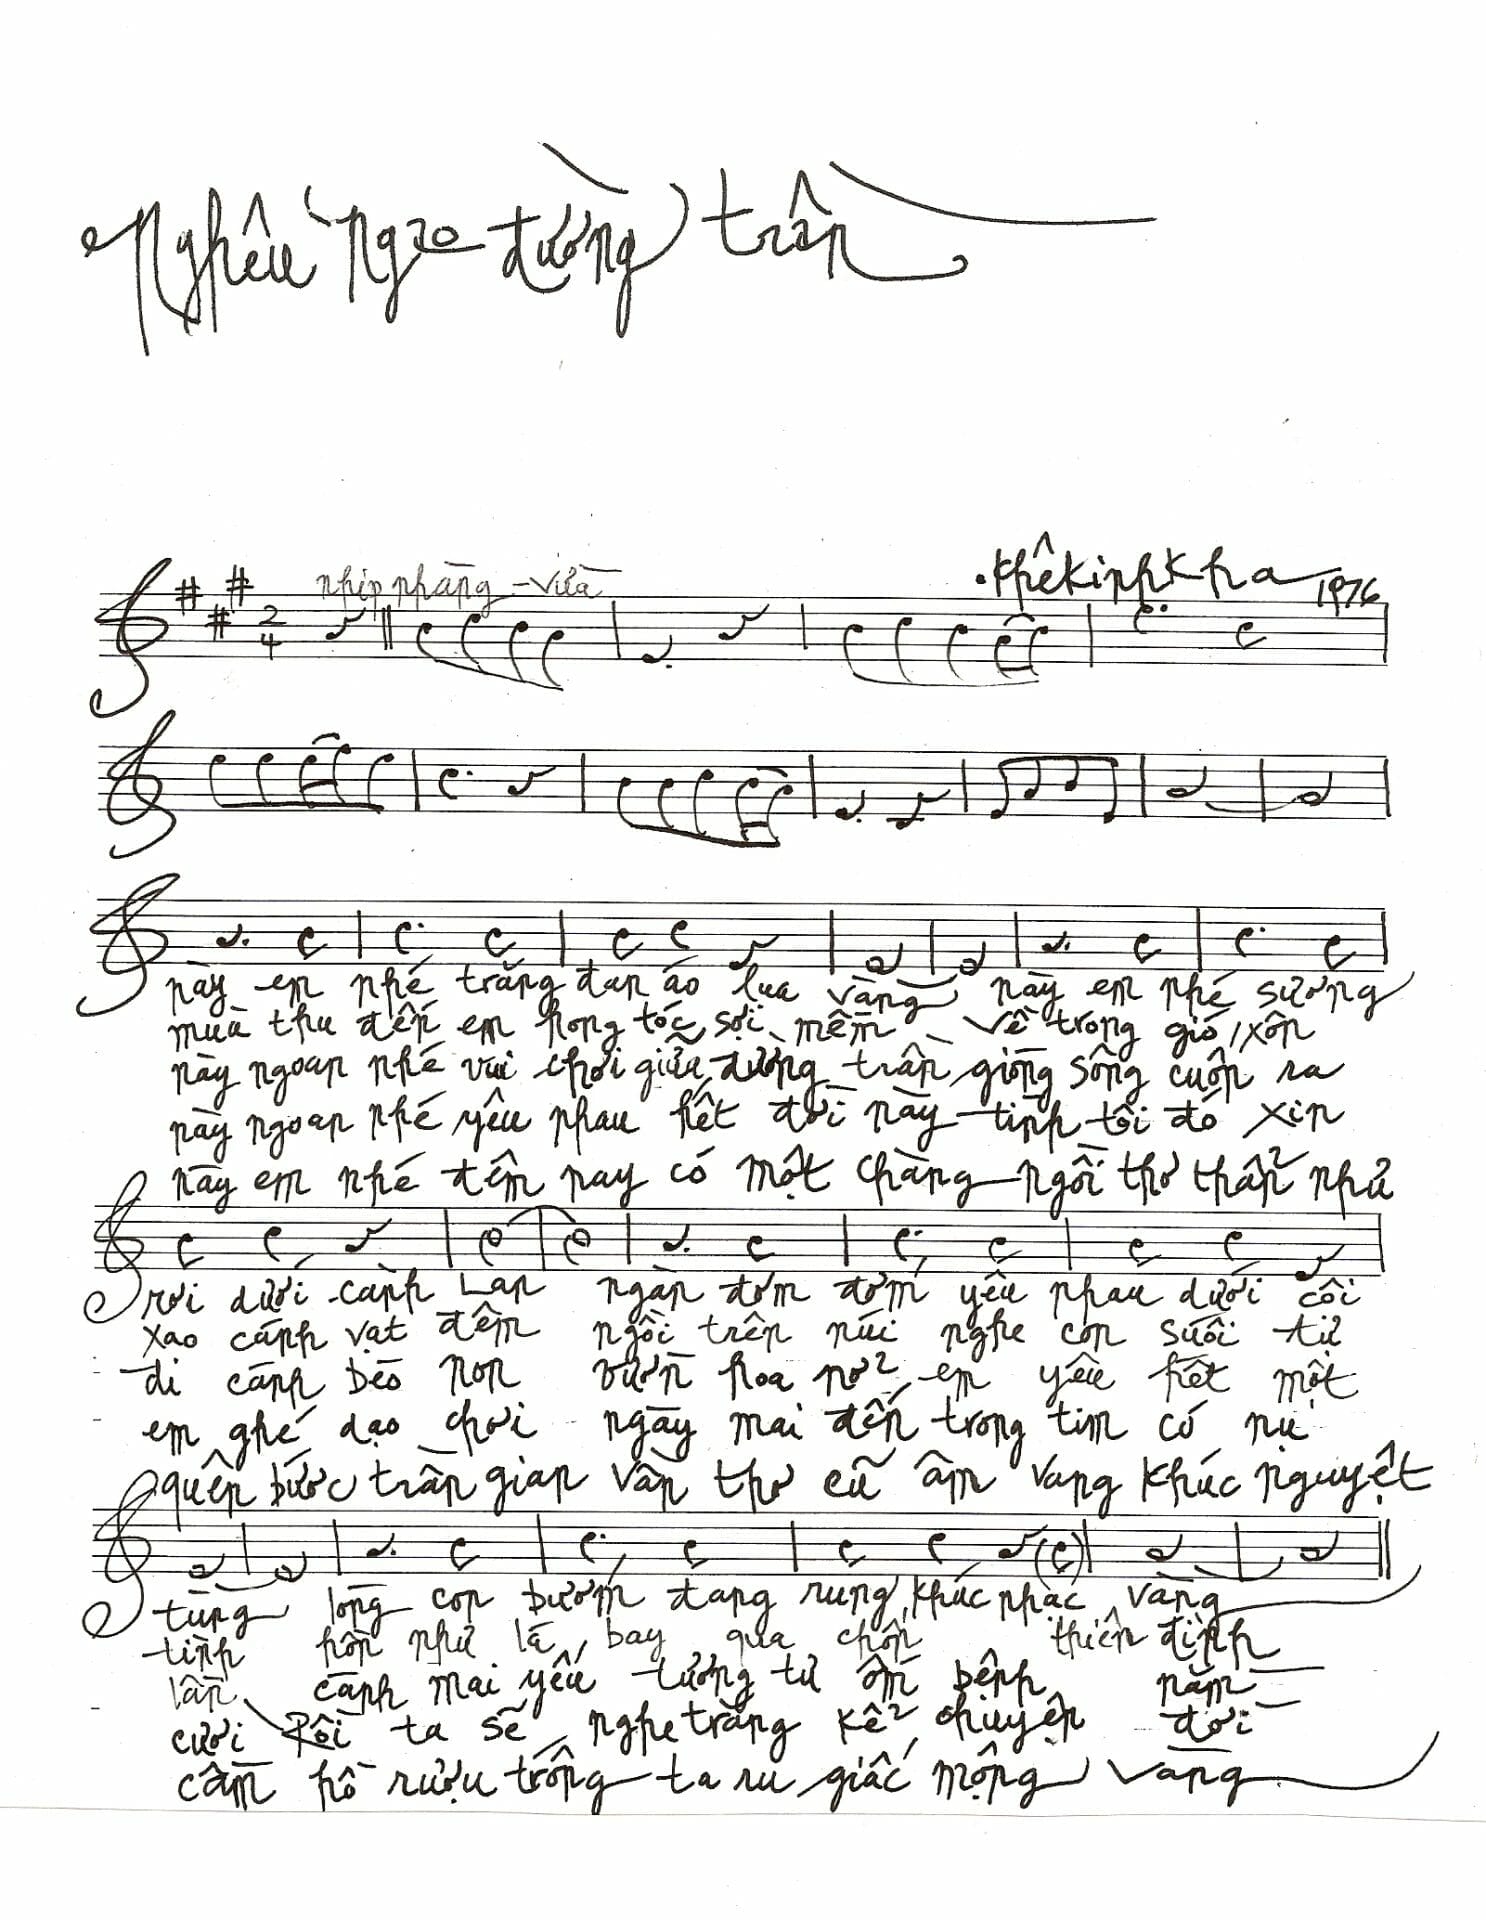 Nghêu ngao đường trần
Khê Kinh Kha 1976
nhịp nhàng - vừa
2
4
này em nhé trăng đan áo lụa vàng này em nhé sương
mùa thu đến em hong tóc sợi mềm về trong gió xôn
này ngoan nhé vui chơi giữa đường trần giòng sông cuốn ra
này ngoan nhé yêu nhau hết đời này tình tôi đó xin
này em nhé đêm nay có một chàng ngồi thơ thẩn như
rơi dưới cành Lan ngàn đom đóm yêu nhau dưới cội
xao cánh vạt đêm ngồi trên núi nghe con suối tự
đi cánh bèo non vườn hoa nở em yêu hết một
em ghé dạo chơi ngày mai đến trong tim có nụ
quên bước trần gian vần thơ cũ âm vang khúc nguyệt
tùng lòng con bướm đang rung khúc nhạc vàng
tình hồn như lá bay qua chốn thiên đình
lần cành mai yếu tương tư ốm bệnh nằm
cười Rồi ta sẽ nghe trăng kể chuyện đời
cầm hồ rượu trống ta ru giấc mộng vàng